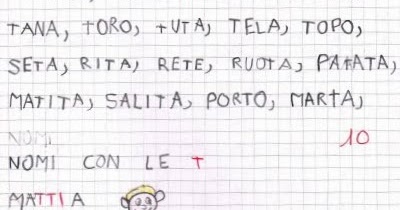 TANA, TORO, TUTA, TELA, TOPO,
SETA, RITA, RETE, RUOTA, PATATA,
MATITA, SALITA, PORTO, MARTA,
NOMI 10
NOMI CON LE T
MATTIA